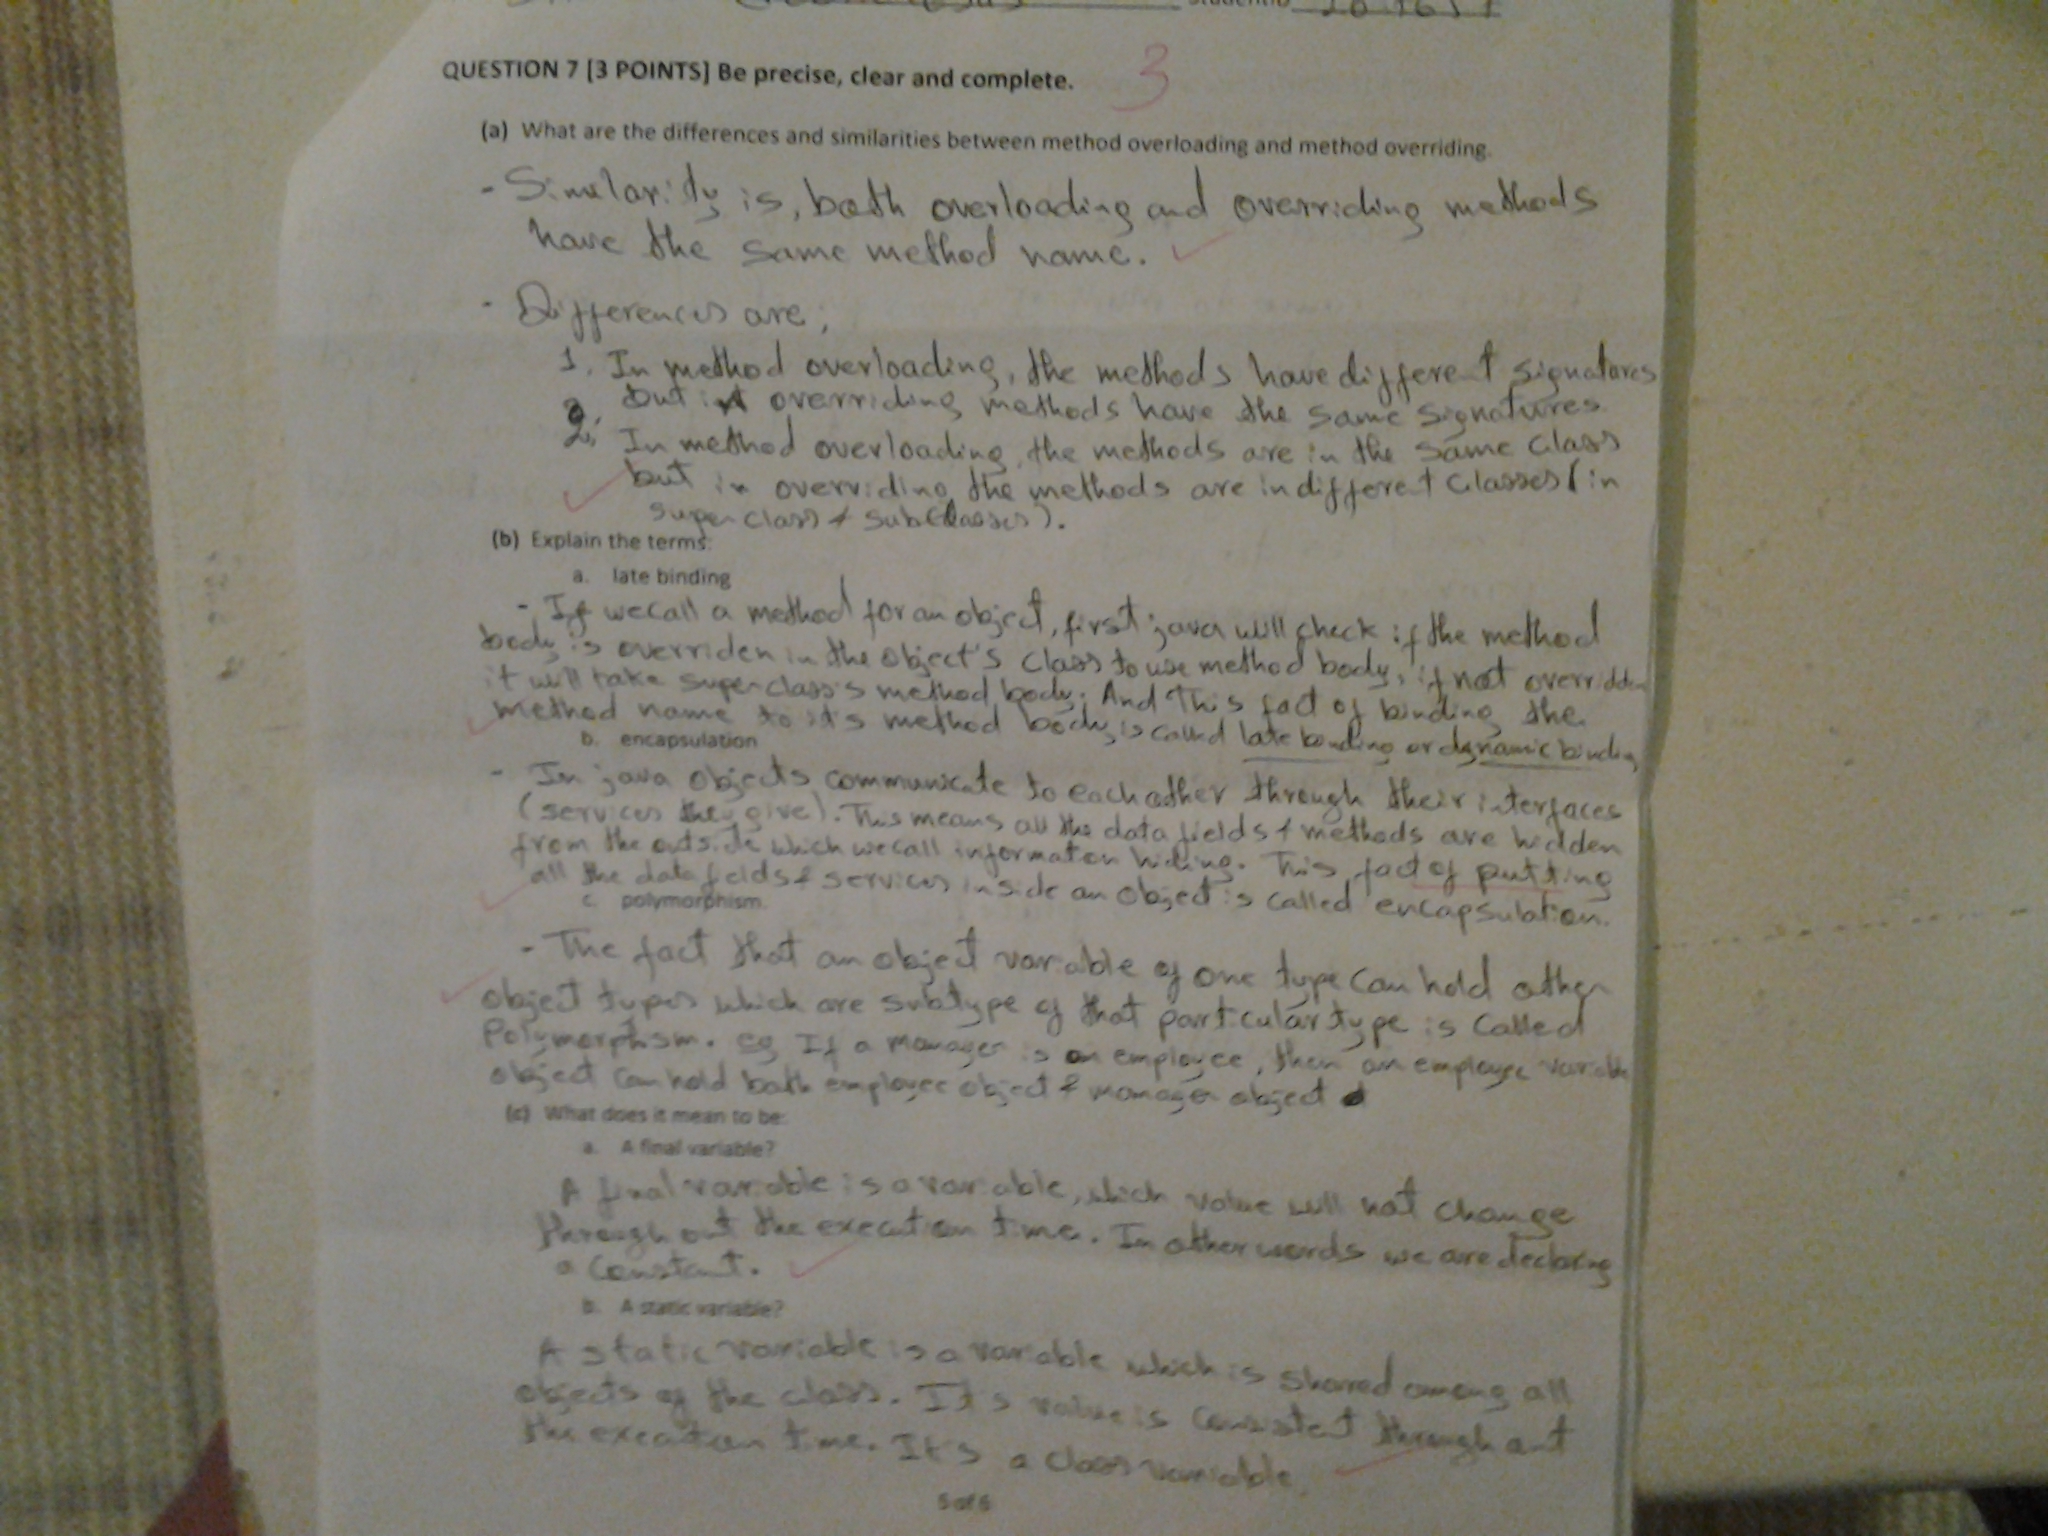 StudentID
QUESTION 7 [3 POINTS] Be precise, clear and complete. 3
(a) What are the differences and similarities between method overloading and method overriding.
- Similarity is, both overloading and overriding methods
have the same method name.
- Differences are,
1. In method overloading, the methods have different signatures
but in overriding methods have the same signatures.
2. In method overloading, the methods are in the same class
but in overriding the methods are in different classes (in
superclass & subclasses).
(b) Explain the terms:
a. late binding
- If we call a method for an object, first java will check if the method
body is overriden in the object's class to use method body, if not overridden
it will take superclass's method body. And this fact of binding the
method name to it's method body is called late binding or dynamic binding
b. encapsulation
- In java objects communicate to each other through their interfaces
(services they give). This means all the data fields & methods are hidden
from the outside which we call information hiding. This fact of putting
all the data fields & services inside an object is called encapsulation.
c. polymorphism.
- The fact that an object variable of one type can hold other
object types which are subtype of that particular type is called
Polymorphism. eg If a manager is an employee, then an employee variable
object can hold both employee object & manager object
(c) What does it mean to be:
a. A final variable?
A final variable is a variable, which value will not change
through out the execution time. In other words we are declaring
a constant.
b. A static variable?
A static variable is a variable which is shared among all
objects of the class. It's value is consistent through out
the execution time. It's a class variable.
5 of 6